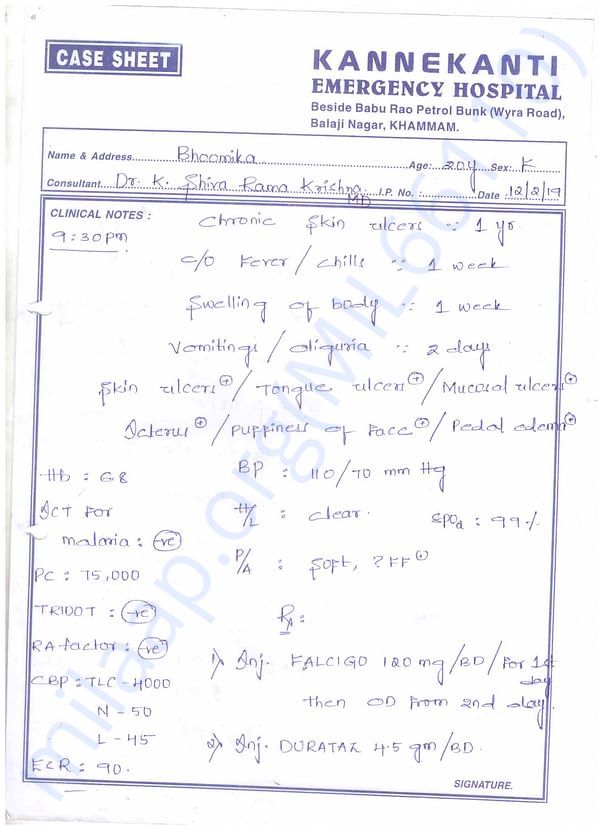 CASE SHEET
KANNEKANTI
EMERGENCY HOSPITAL
Beside Babu Rao Petrol Bunk (Wyra Road),
Balaji Nagar, KHAMMAM.
Name & Address Bhoomika Age: 20y Sex: F
Consultant Dr. K. Shiva Rama Krishna MD I.P. No.: Date 12/2/19
CLINICAL NOTES :
9:30pm
Chronic skin ulcers ∵ 1 yr.
C/o Fever / chills ∵ 1 week
Swelling of body ∵ 1 week
Vomitings / oliguria ∵ 2 days
Skin ulcers⊕ / Tongue ulcers⊕ / Mucosal ulcers⊕
Icterus⊕ / puffiness of Face⊕ / Pedal edema⊕
Hb : 6.8
BP : 110/70 mm Hg
ICT For
malaria : -ve
H/L : clear.
SPO2 : 99%
PC : 75,000
P/A : soft, ? FF
TRIDOT : -ve
Rx :
RA factor : -ve
1) Inj. FALCIGO 120 mg / BD / For 1st day
then OD From 2nd day.
CBP : TLC - 4000
N - 50
L - 45
2) Inj. DURATAZ 4.5 gm / BD.
ESR : 90.
SIGNATURE.
milaap.org(MIL66110)